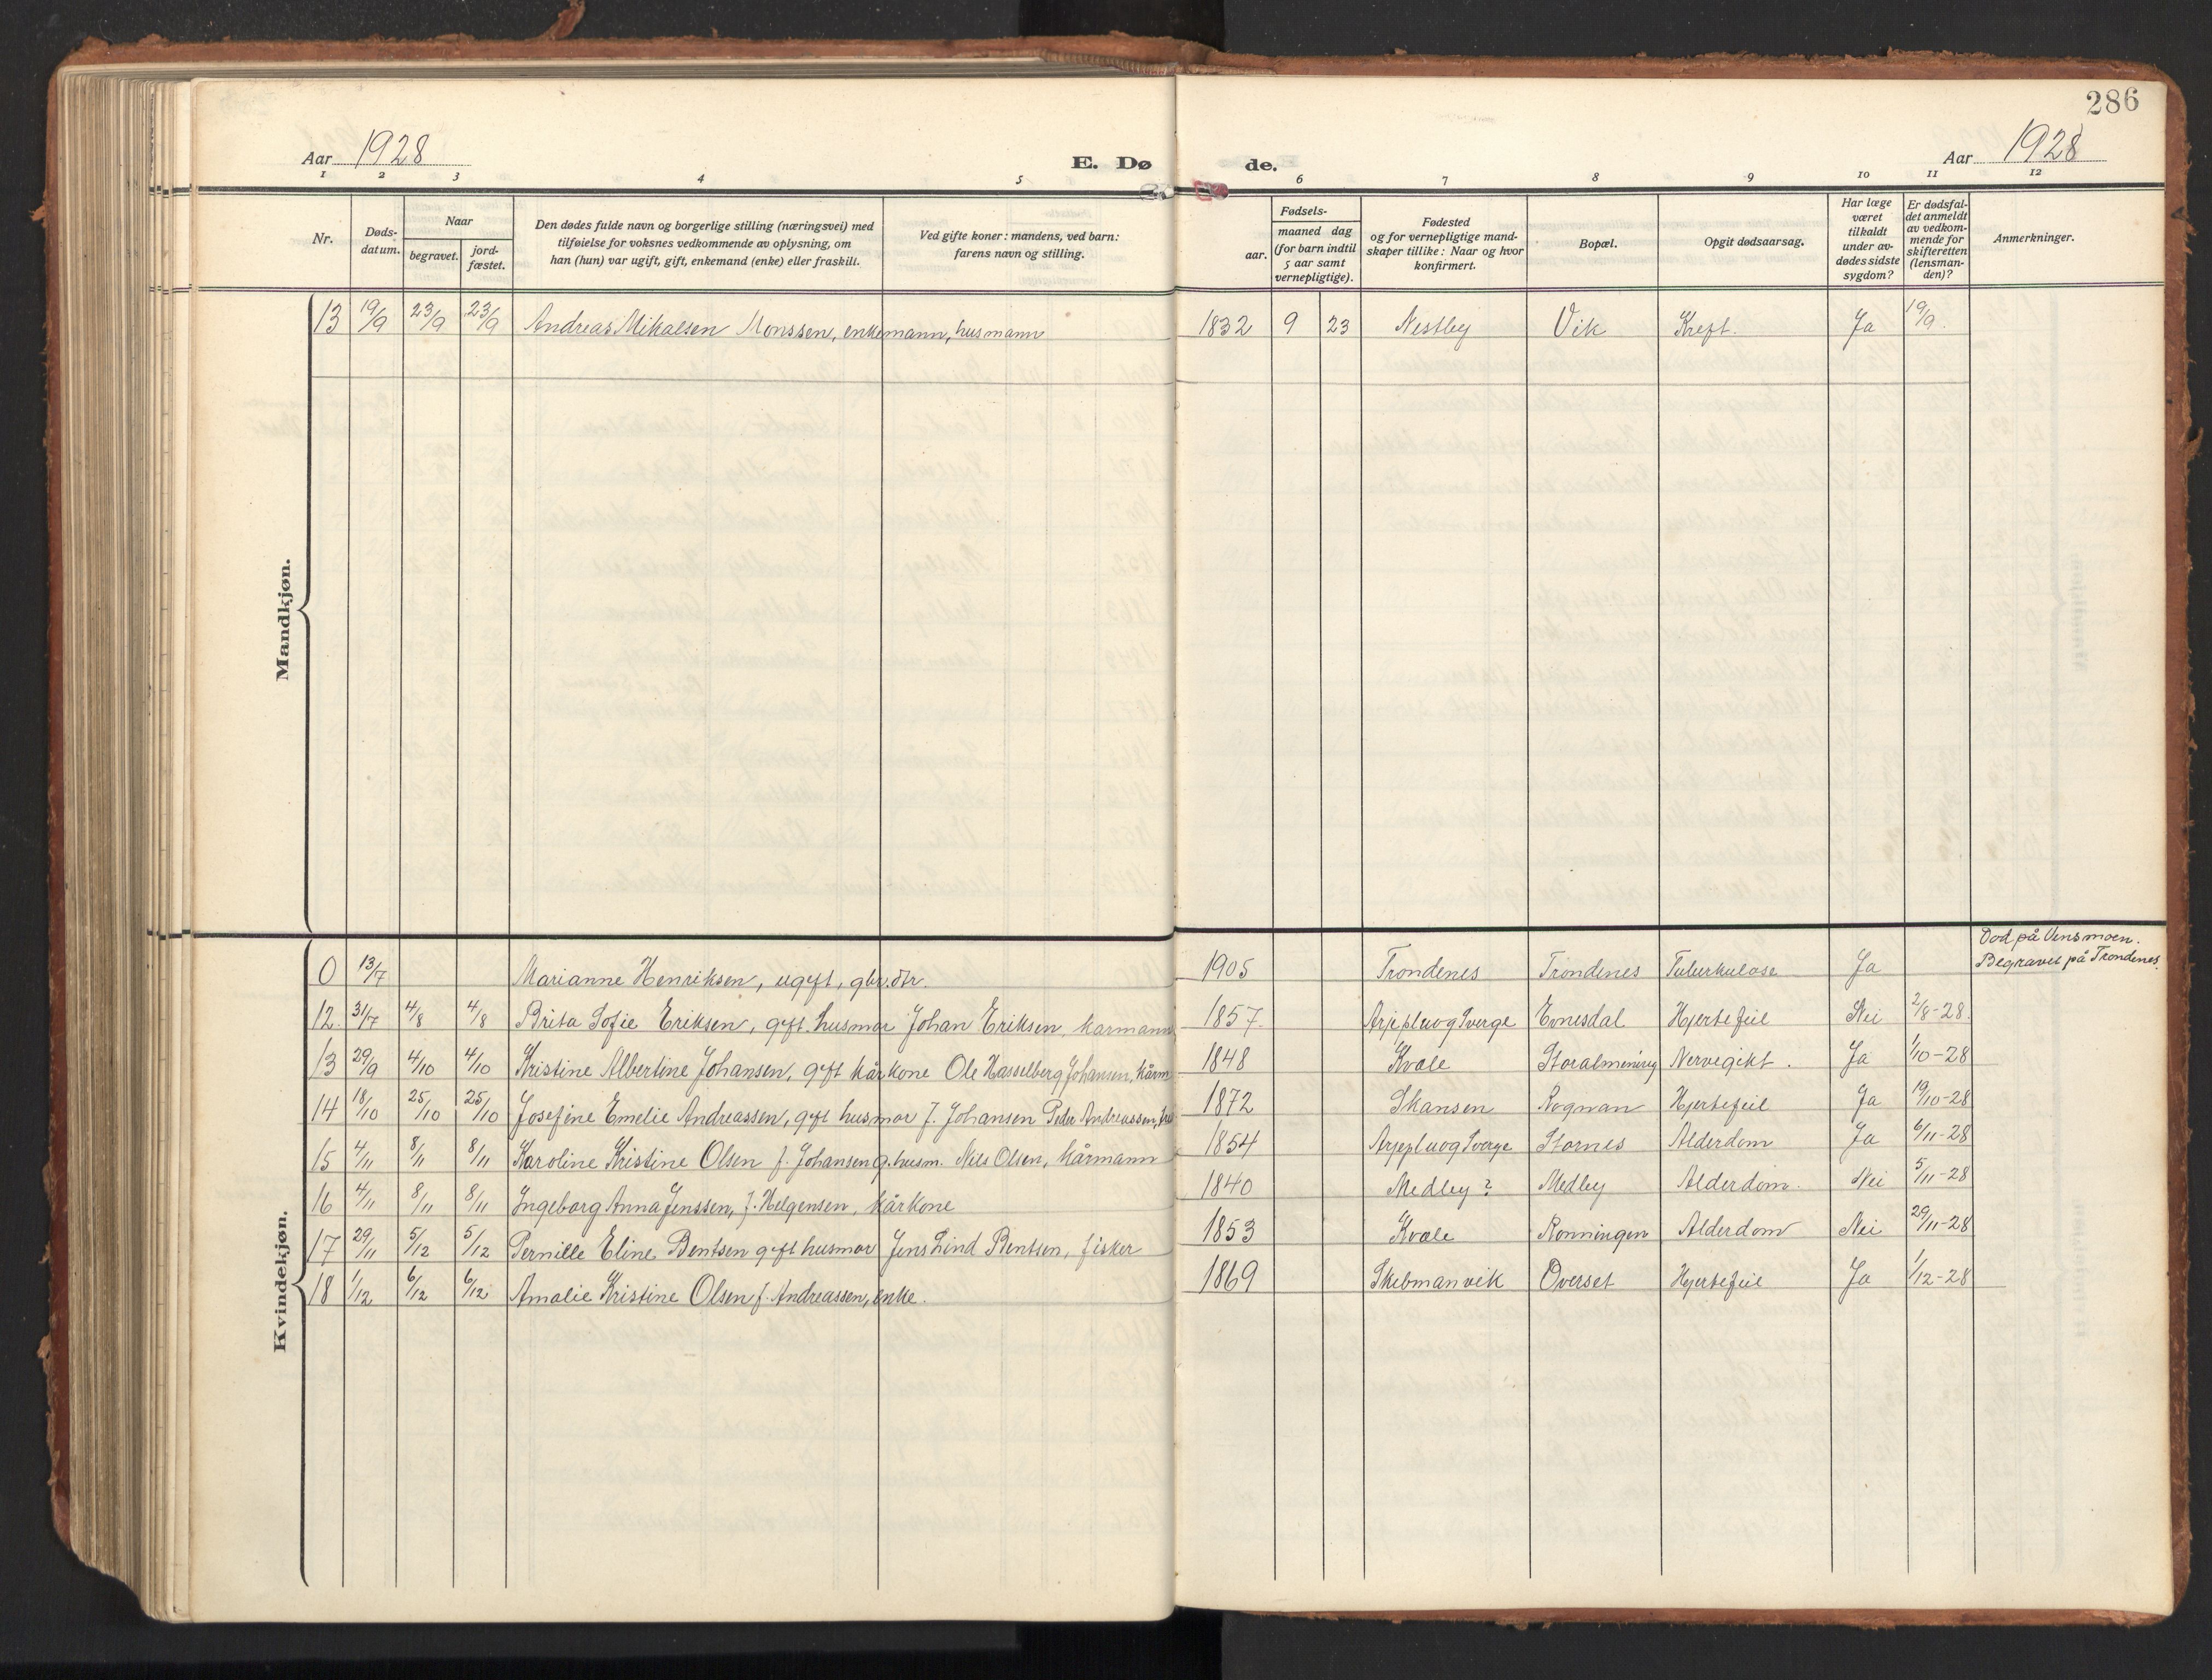 286
Aar 1928
E. Dø de.
Aar 1928
1 2 3 4 5 6 7 8 9 10 11 12
Nr.
Døds-
datum.
Naar
begravet.
jord-
fæstet.
Den dødes fulde navn og borgerlige stilling (næringsvei) med
tilføielse for voksnes vedkommende av oplysning, om
han (hun) var ugift, gift, enkemand (enke) eller fraskilt.
Ved gifte koner: mandens, ved barn:
farens navn og stilling.
Fødsels-
aar.
maaned dag
(for barn indtil
5 aar samt
vernepligtige).
Fødested
og for vernepligtige mand-
skaper tillike: Naar og hvor
konfirmert.
Bopæl.
Opgit dødsaarsag.
Har læge
været
tilkaldt
under av-
dødes sidste
sygdom?
Er dødsfal-
det anmeldt
av vedkom-
mende for
skifteretten
(lensman-
den)?
Anmerkninger.
Mandkjøn.
13 19/9 23/9 23/9 Andreas Mikalsen Monssen, enkemann, husmann 1832 9 23 Nestby Vik Kreft. Ja 19/9.
Kvindekjøn.
0 13/7 Marianne Henriksen, ugft, gbr.dtr. 1905 Trondenes Trondenes Tuberkulose Ja Død på Vensmoen.
Begravet på Trondenes.
12. 31/7 4/8 4/8 Brita Sofie Eriksen, gift husmor Johan Eriksen, karmann 1857. Arjepluog Sverge Evnesdal Hjertefeil Nei 2/8-28.
13 29/9 4/10 4/10 Kristine Albertine Johansen, gft kårkone Ole Hasselberg Johansen, kårm 1848 Kvæle Storalmening Nervegikt. Ja 1/10-28
14 18/10 25/10 25/10 Josefine Emelie Andreassen, gft husmor f. Johansen Peder Andreassen, 1872 Skansen Rognan Hjertefeil Ja 19/10-28
15 4/11 8/11 8/11 Karoline Kristine Olsen f. Johansen g. husm. Nils Olsen, kårmann 1854 Arjepluog Sverge Stornes Alderdom Ja 6/11-28
16 4/11 8/11 8/11 Ingeborg Anna Jenssen, f. Helgensen, kårkone 1840 Medby? Medby Alderdom. Nei 5/11-28
17 29/11 5/12 5/12 Pernille Eline Bentsen gft husmor Jens Lind Bentsen, fisker 1853 Kvæle Rønningen Alderdom Nei 29/11-28
18 1/12 6/12 6/12 Amalie Kristine Olsen f. Andreassen, enke. 1869 Skebmanvik Øverset Hjertefeil Ja 1/12-28